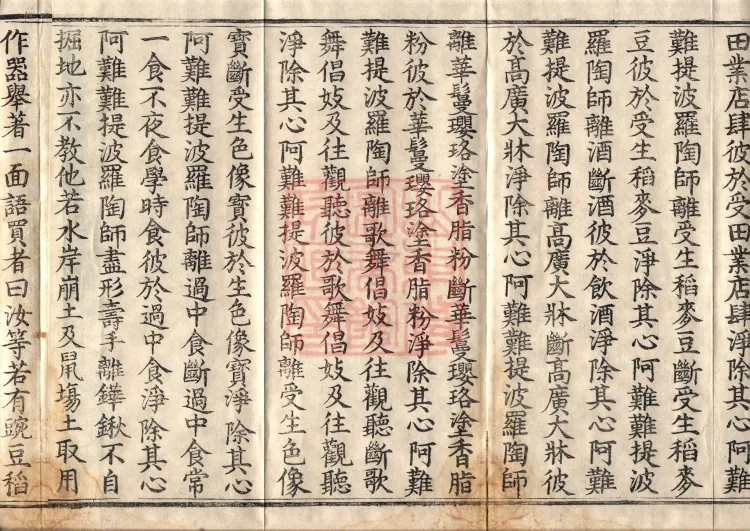 田業店肆彼於受田業店肆淨除其心阿難
難提波羅陶師離受生稻麥豆斷受生稻麥
豆彼於受生稻麥豆淨除其心阿難難提波
羅陶師離酒斷酒彼於飲酒淨除其心阿難
難提波羅陶師離高廣大牀斷高廣大牀彼
於高廣大牀淨除其心阿難難提波羅陶師
離華鬘瓔珞塗香脂粉斷華鬘瓔珞塗香脂
粉彼於華鬘瓔珞塗香脂粉淨除其心阿難
難提波羅陶師離歌舞倡妓及往觀聽斷歌
舞倡妓及往觀聽彼於歌舞倡妓及往觀聽
淨除其心阿難難提波羅陶師離受生色像
寶斷受生色像寶彼於生色像寶淨除其心
阿難難提波羅陶師離過中食斷過中食常
一食不夜食學時食彼於過中食淨除其心
阿難難提波羅陶師盡形壽手離鏵鍬不自
掘地亦不教他若水岸崩土及鼠場土取用
作器舉著一面語買者曰汝等若有豌豆稻